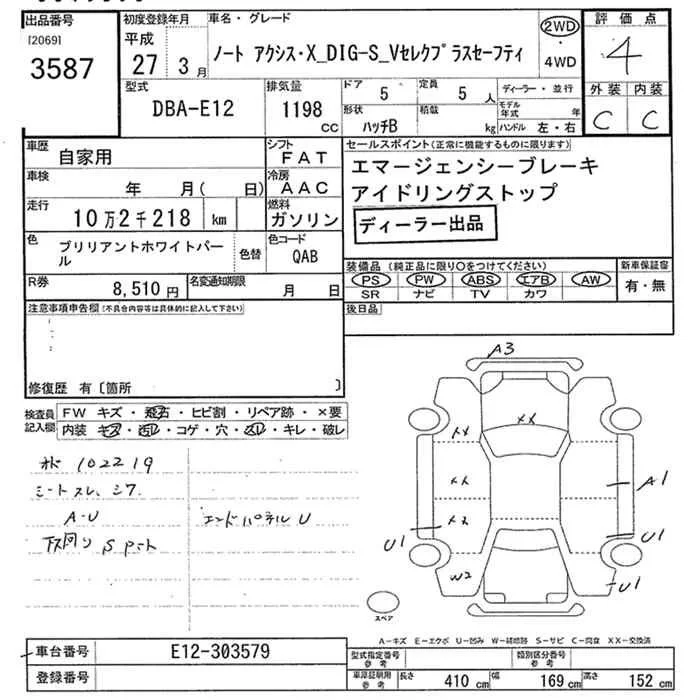 出品番号 初度登録年月 車名・グレード 2WD 評価点
[2069] 平成 ノート アクシス・X_DIG-S_Vセレクプラスセーフティ ・ 4
3587 27 3月 4WD
型式 排気量 ドア 5 定員 5人 ディーラー・並行 外装 内装
DBA-E12 1198 CC 形状 ハッチB 積載 kg モデル年式 年 ハンドル 左・右 C C
車歴 自家用 シフト FAT セールスポイント(正常に機能するものに限ります)
車検 年 月( 日) 冷房 AAC エマージェンシーブレーキ
走行 10万2千218 km 燃料 ガソリン アイドリングストップ
ディーラー出品
色 ブリリアントホワイトパール 色替 色コード QAB
装備品(純正品に限り○をつけてください) 新車保証書
R券 8,510円 名変通知期限 月 日 PS PW ABS エアB AW 有・無
SR ナビ TV カワ
注意事項申告欄(不具合内容等は具体的に記入して下さい) 後日品
修復歴 有〔箇所 〕
検査員記入欄 FW キズ・飛石・ヒビ割・リペア跡・×要
内装 キズ・汚れ・コゲ・穴・スレ・キレ・破レ
A3
XX
XX
XX
XX
A1
U1
U1
U1
W2
102219
シートスレ、シワ
A-U エンドパネルU
下回り Sアート
スペア
A-キズ E-エクボ U-凹み W-補修跡 S-サビ C-腐食 XX-交換済
車台番号 E12-303579 型式指定番号 参考 類別区分番号 参考
登録番号 車庫証明用 参考 長さ 410 cm 幅 169 cm 高さ 152 cm